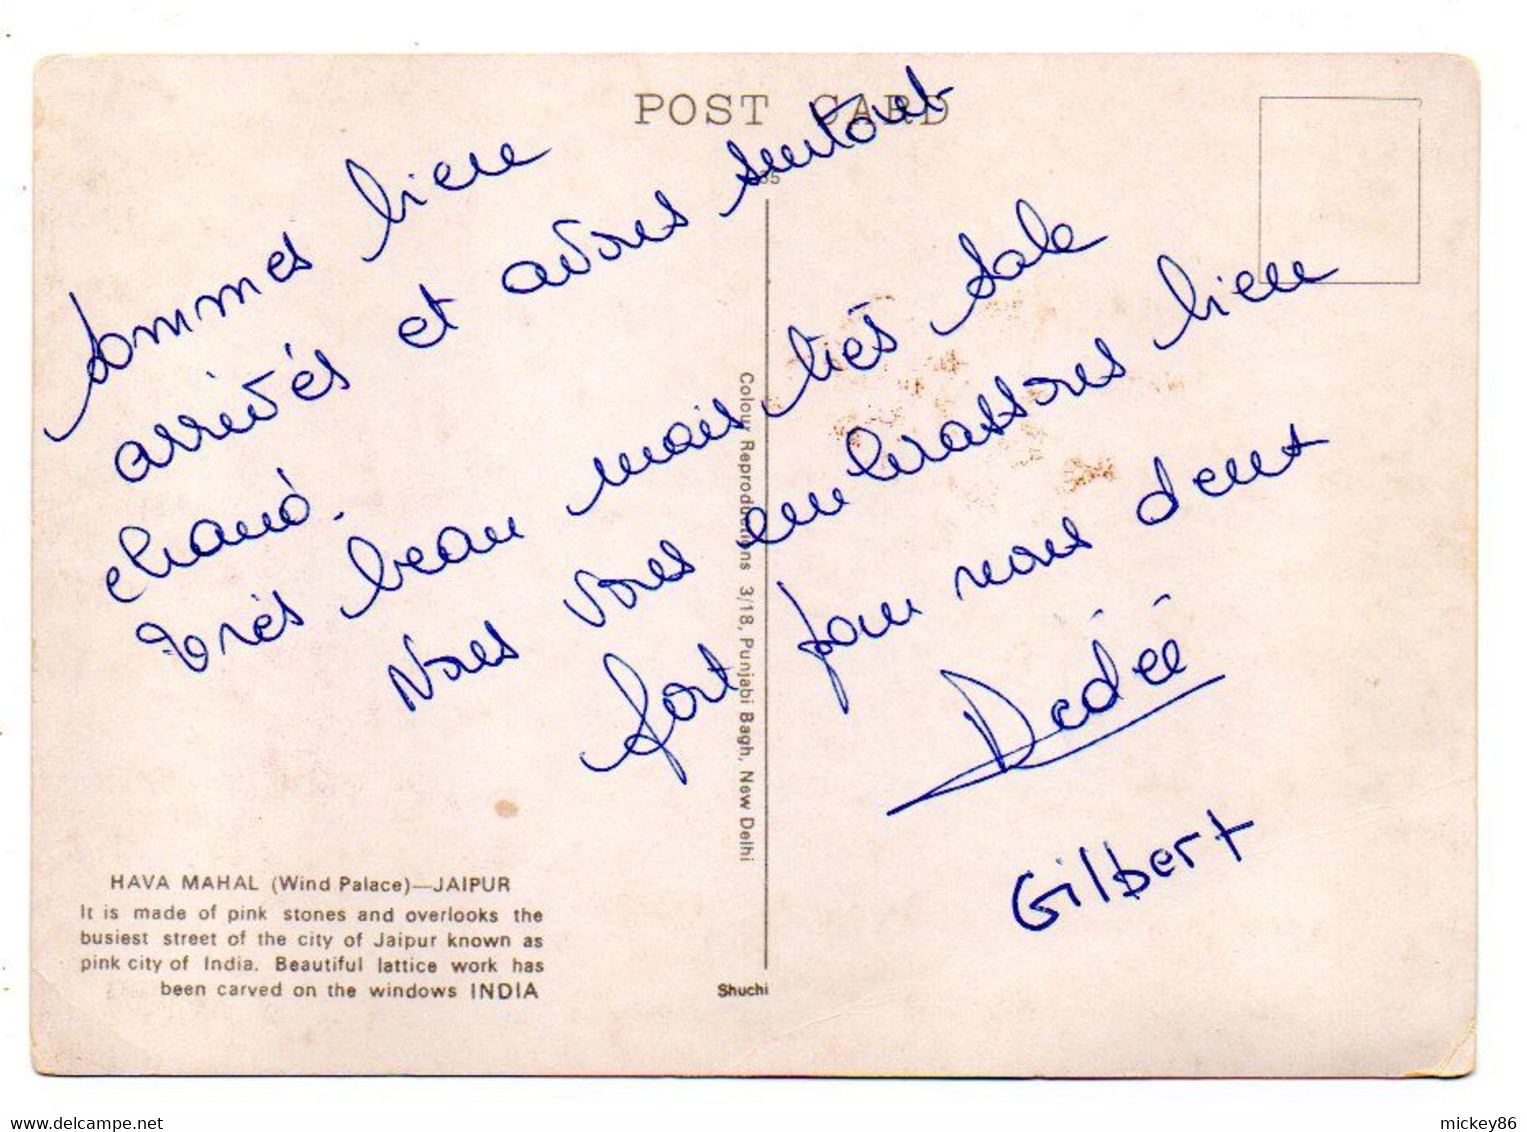 POST CARD
Sommes bien
arrivés et avons surtout
chaud.
très beau mais très sale
Nous vous embrassons bien
fort pour nous deux
Dédée
Gilbert
Colour Reproductions 3/18, Punjabi Bagh, New Delhi
HAVA MAHAL (Wind Palace)—JAIPUR
It is made of pink stones and overlooks the
busiest street of the city of Jaipur known as
pink city of India. Beautiful lattice work has
been carved on the windows INDIA
Shuchi
www.delcampe.net
mickey86